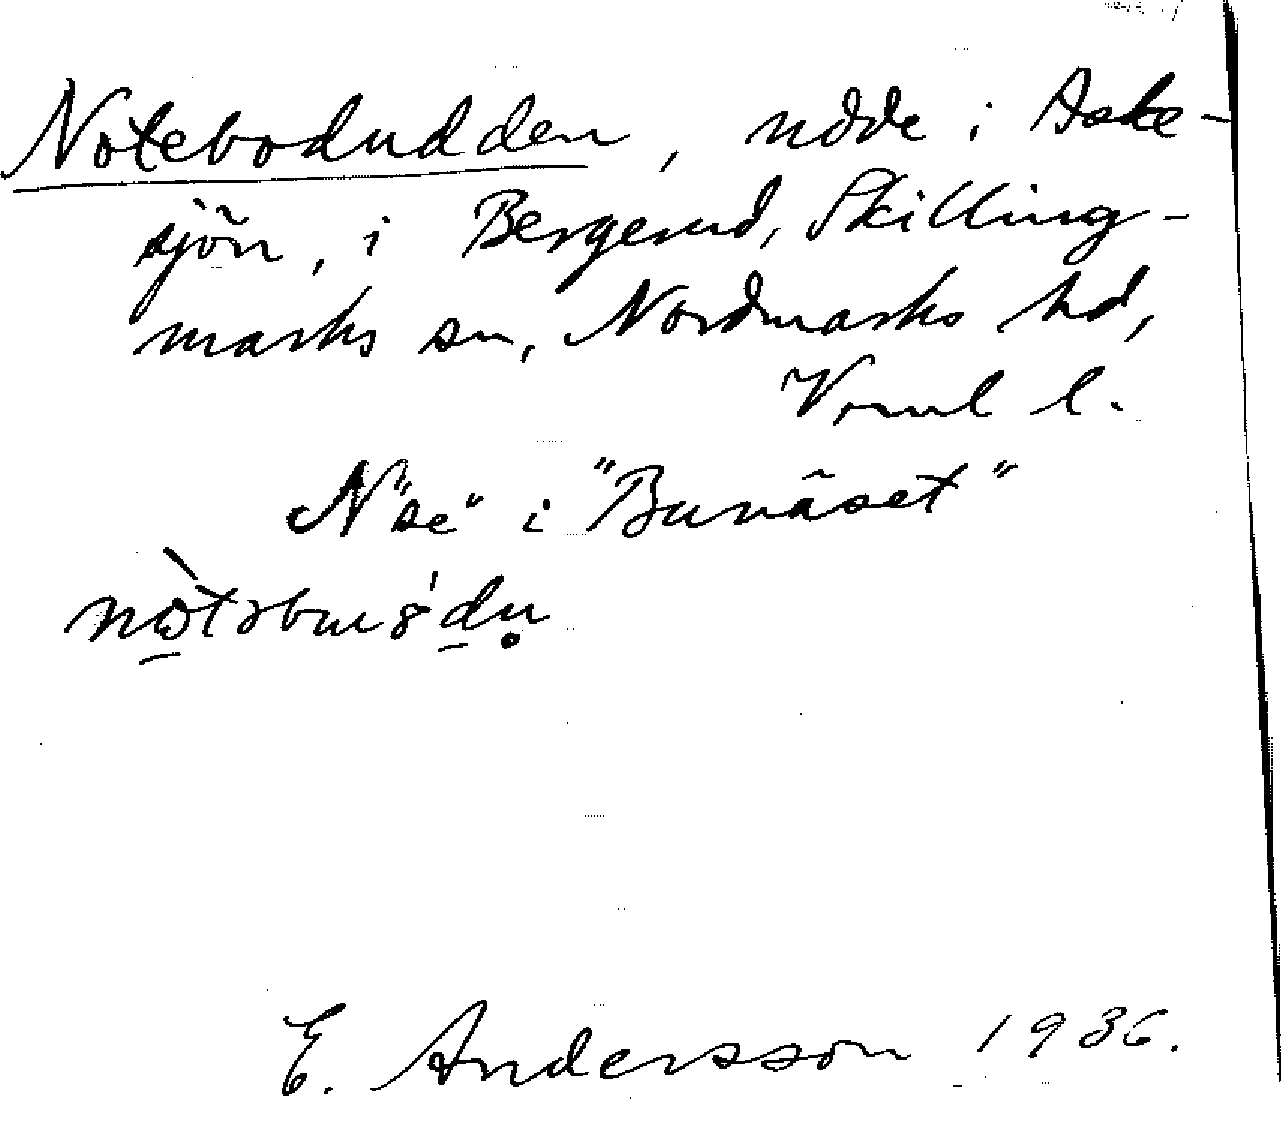 Notebodudden, udde i Aske-
sjön, i Bergerud, Skilling-
marks sn, Nordmarks hd,
Vrml l.
N "se" i "Bunäset"
E. Andersson 1936.